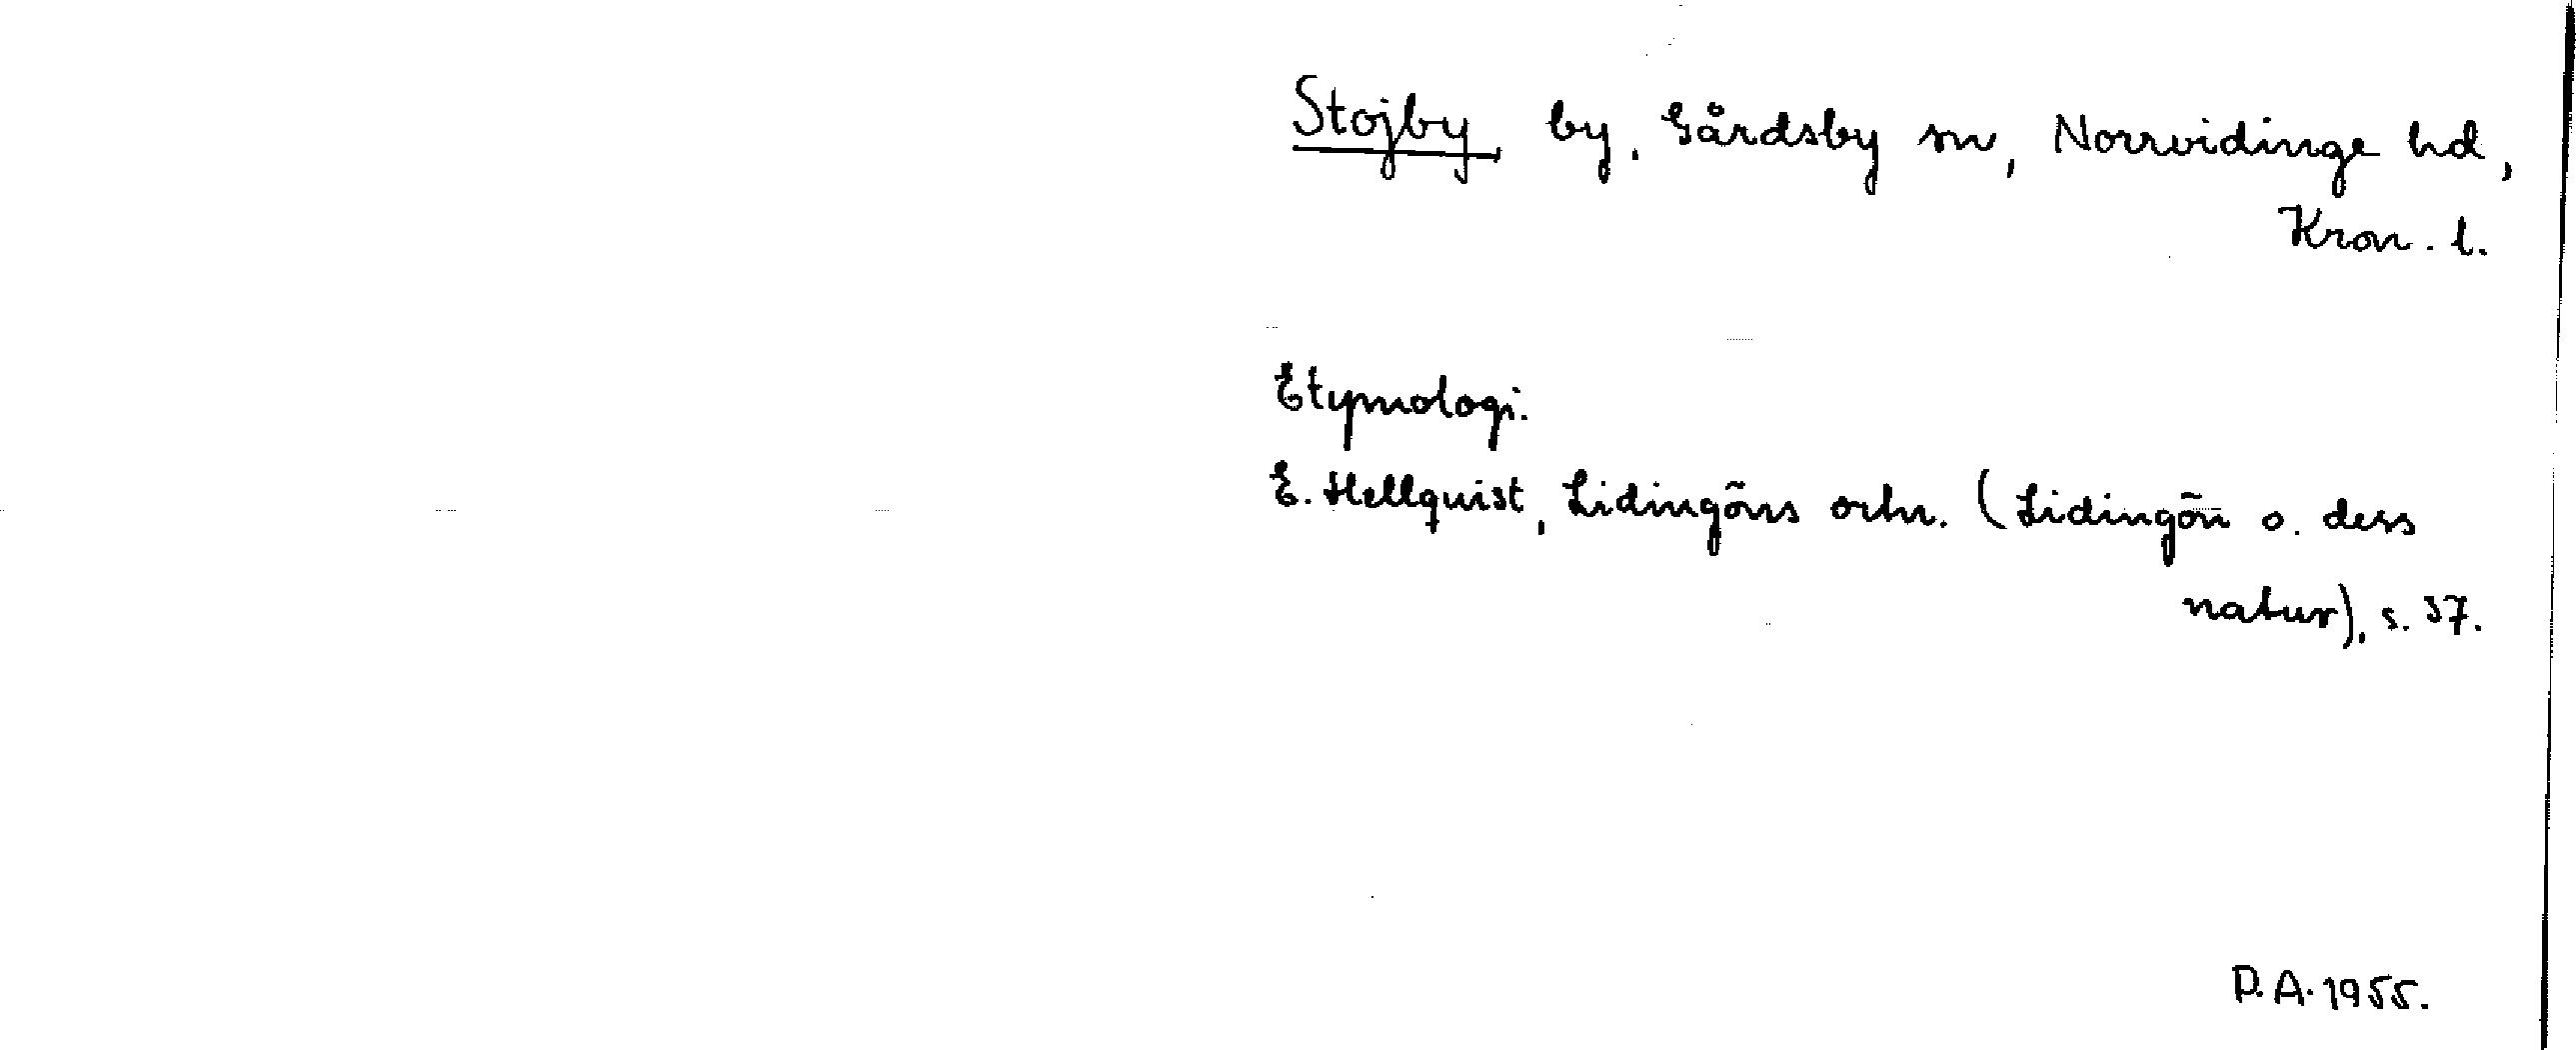 Stojby by, Gårdsby sn, Norrvidinge hd,
Kron. l.
Etymologi.
E. Hellquist, Lidingöns ortn. (Lidingön o. dess
natur), s. 37.
D.A. 1955.